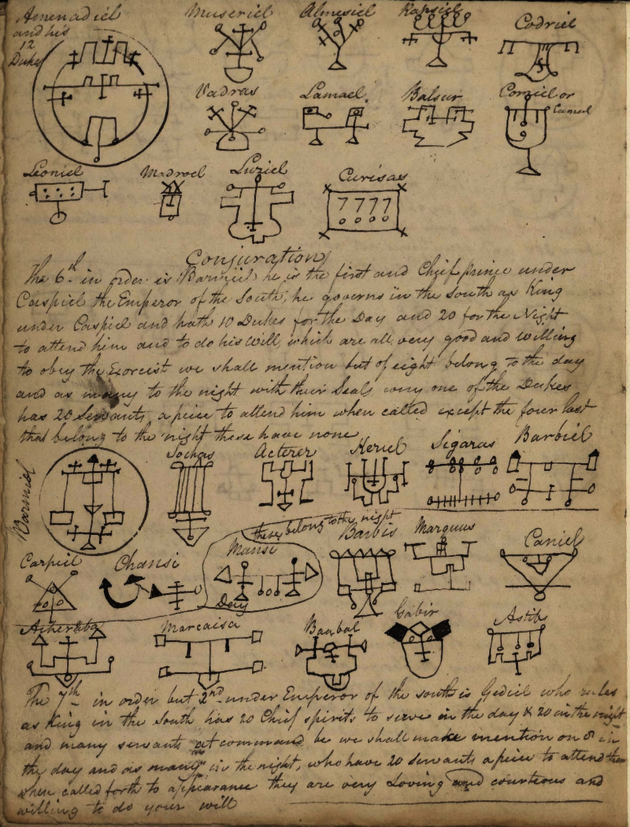 Amenadiel
and his
12
Dukes
Museriel
Almesiel
Rapsiel
Codriel
Vadras
Lamael
Balsur
Curziel or
Leoniel
Madroel
Luziel
Curisas
7777
Conjuration
The 6th in order is Barmiel he is the first and Chief prince under
Caspiel the Emperor of the South, he governs in the South as King
under Caspiel and hath 10 Dukes for the Day and 20 for the Night
to attend him and to do his Will which are all very good and willing
to obey the Exorcist we shall mention but of eight belong to the day
and as many to the night with their Seals one of the Dukes
has 20 Servants a piece to attend him when called except the four last
that belong to the night these have none
Barmiel
Sochas
Acterer
Keriel
Sigaras
Barbiel
these belong to the night
Carpiel
Chansi
Mansi
Day
Barbis
Marquus
Caniel
Acheraba
Marcaisa
Baabal
Gabir
Astib
The 7th in order but 2nd under Emperor of the south is Gediel who rules
as King in the South has 20 Chief spirits to serve in the day & 20 in the night
and many servants at command be we shall make mention on 8 in
the day and as many in the night, who have 20 servants a piece to attend them
when called forth to appearance they are very Loving and courtious and
willing to do your will